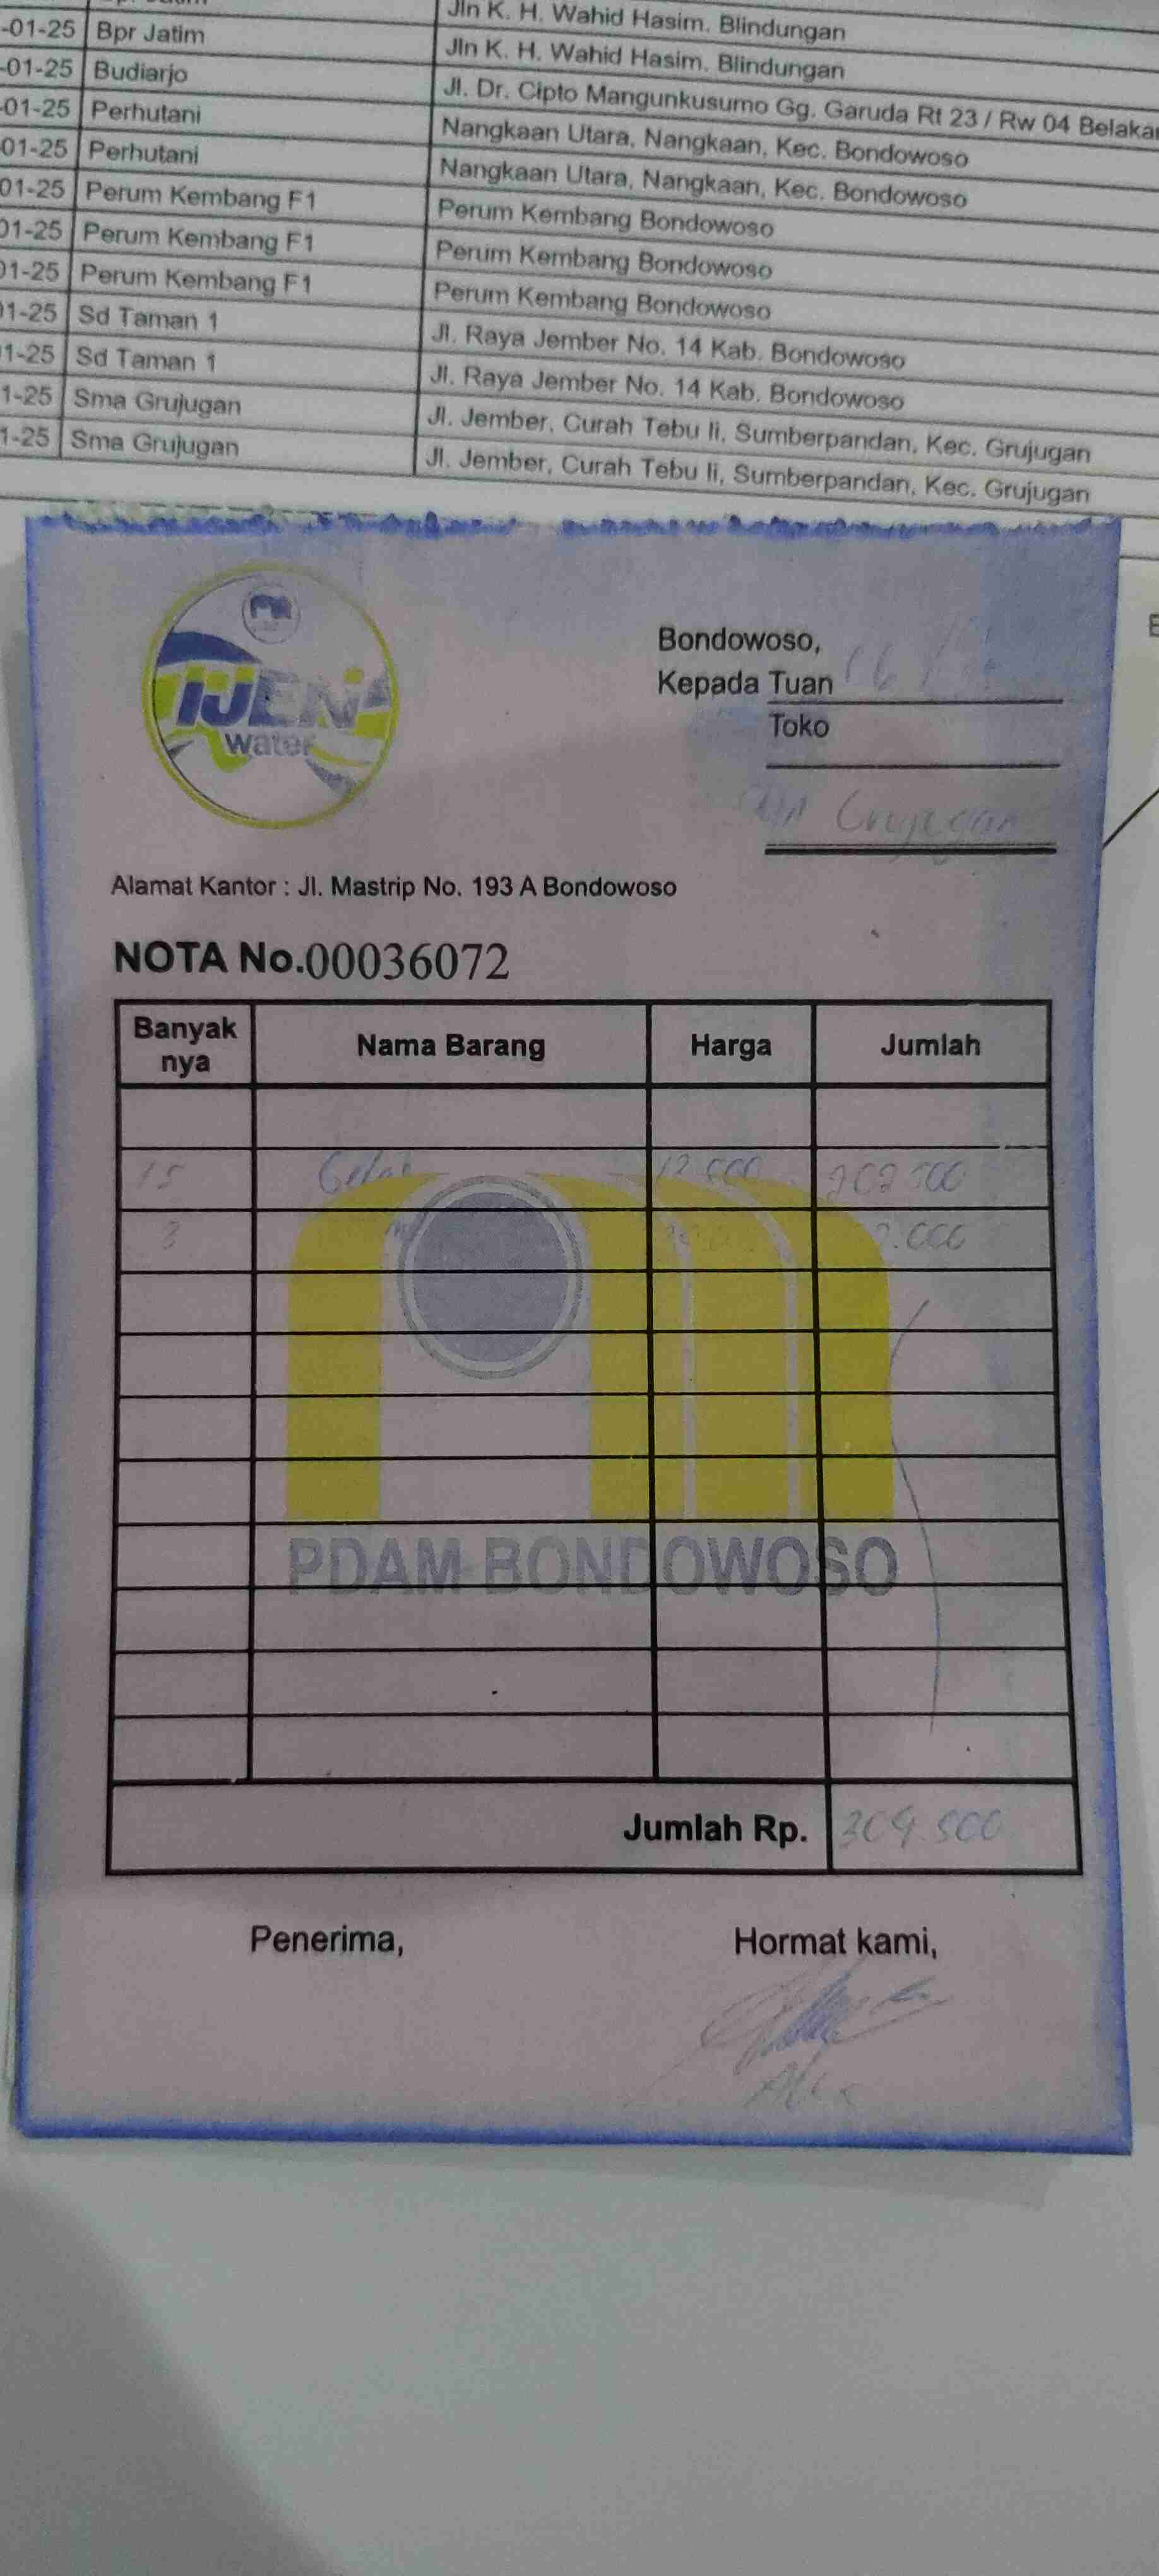 Jln K. H. Wahid Hasim. Blindungan
-01-25 Bpr Jatim Jln K. H. Wahid Hasim. Blindungan
-01-25 Budiarjo Jl. Dr. Cipto Mangunkusumo Gg. Garuda Rt 23 / Rw 04 Belaka
-01-25 Perhutani Nangkaan Utara, Nangkaan, Kec. Bondowoso
01-25 Perhutani Nangkaan Utara, Nangkaan, Kec. Bondowoso
01-25 Perum Kembang F1 Perum Kembang Bondowoso
01-25 Perum Kembang F1 Perum Kembang Bondowoso
01-25 Perum Kembang F1 Perum Kembang Bondowoso
1-25 Sd Taman 1 Jl. Raya Jember No. 14 Kab. Bondowoso
1-25 Sd Taman 1 Jl. Raya Jember No. 14 Kab. Bondowoso
1-25 Sma Grujugan Jl. Jember, Curah Tebu Ii, Sumberpandan, Kec. Grujugan
1-25 Sma Grujugan Jl. Jember, Curah Tebu Ii, Sumberpandan, Kec. Grujugan
IJEN
Water
Bondowoso, 16
Kepada Tuan
Toko
Grujugan
Alamat Kantor : Jl. Mastrip No. 193 A Bondowoso
NOTA No.00036072
Banyak nya Nama Barang Harga Jumlah
15 Gelas
3
PDAM BONDOWOSO
Jumlah Rp. 309.500
Penerima, Hormat kami,